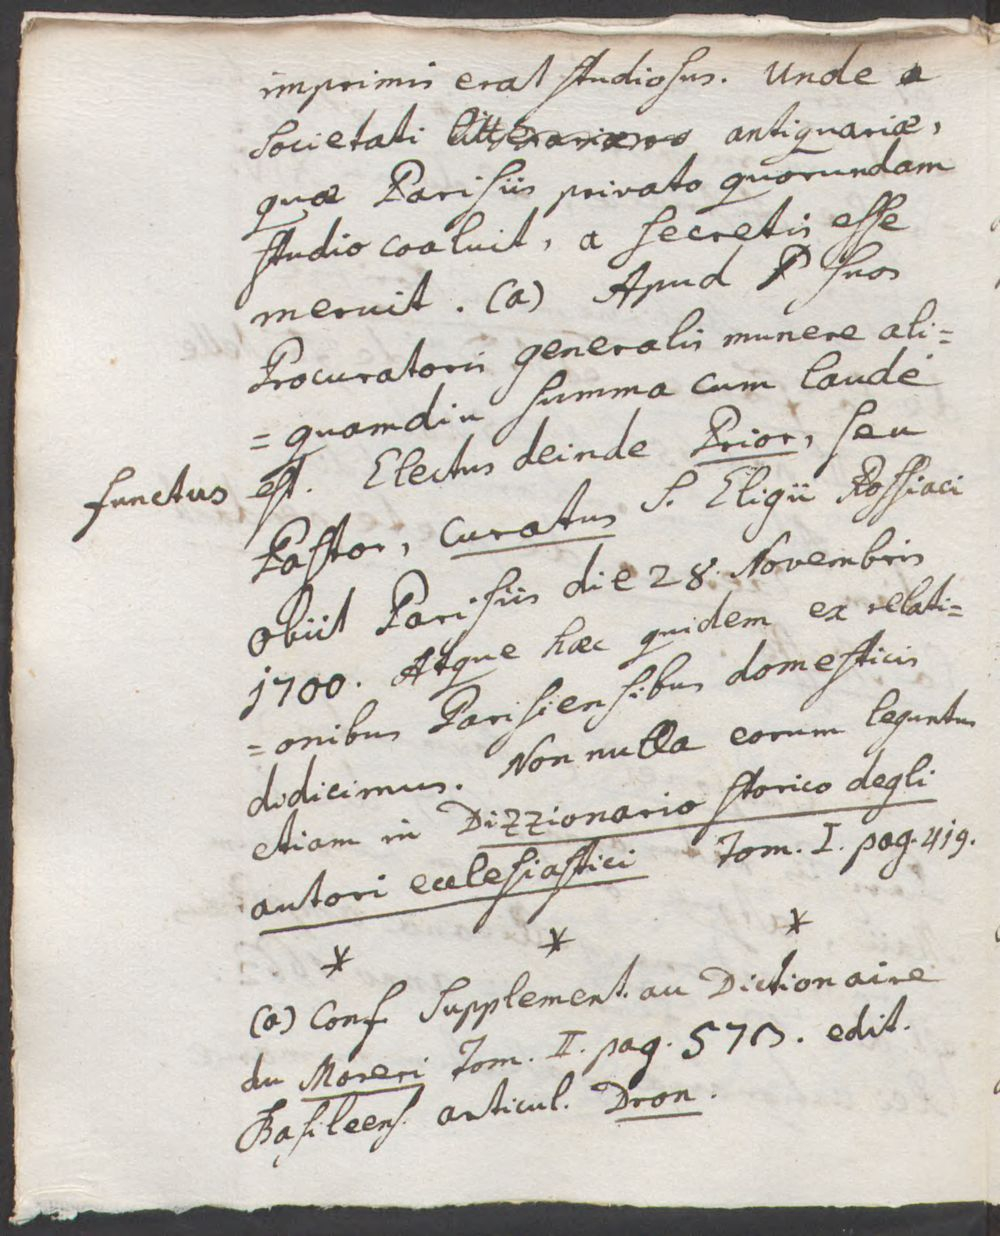 imprimis erat studiosus. Unde a
societati antiquariæ,
quæ Parisiis privato quorundam
studio coaluit, a secretis esse
meruit. (a) Apud suos
Procuratoris generalis munere ali=
=quamdiu summa cum laude
functus est. Electus deinde Prior, seu
Pastor, curatus S. Eligii Rossiaci
obiit Parisiis die 28. Novembris
1700. Atque hæc quidem ex relati=
=onibus Parisiensibus domesticis
didicimus. Nonnulla eorum leguntur
etiam in Dizzionario storico degli
autori ecclesiastici Tom. I. pag. 419.
* * *
(a) Conf. Supplement. au Dictionaire
du Moreri Tom. II. pag. edit.
Basileens. articul. Dron.